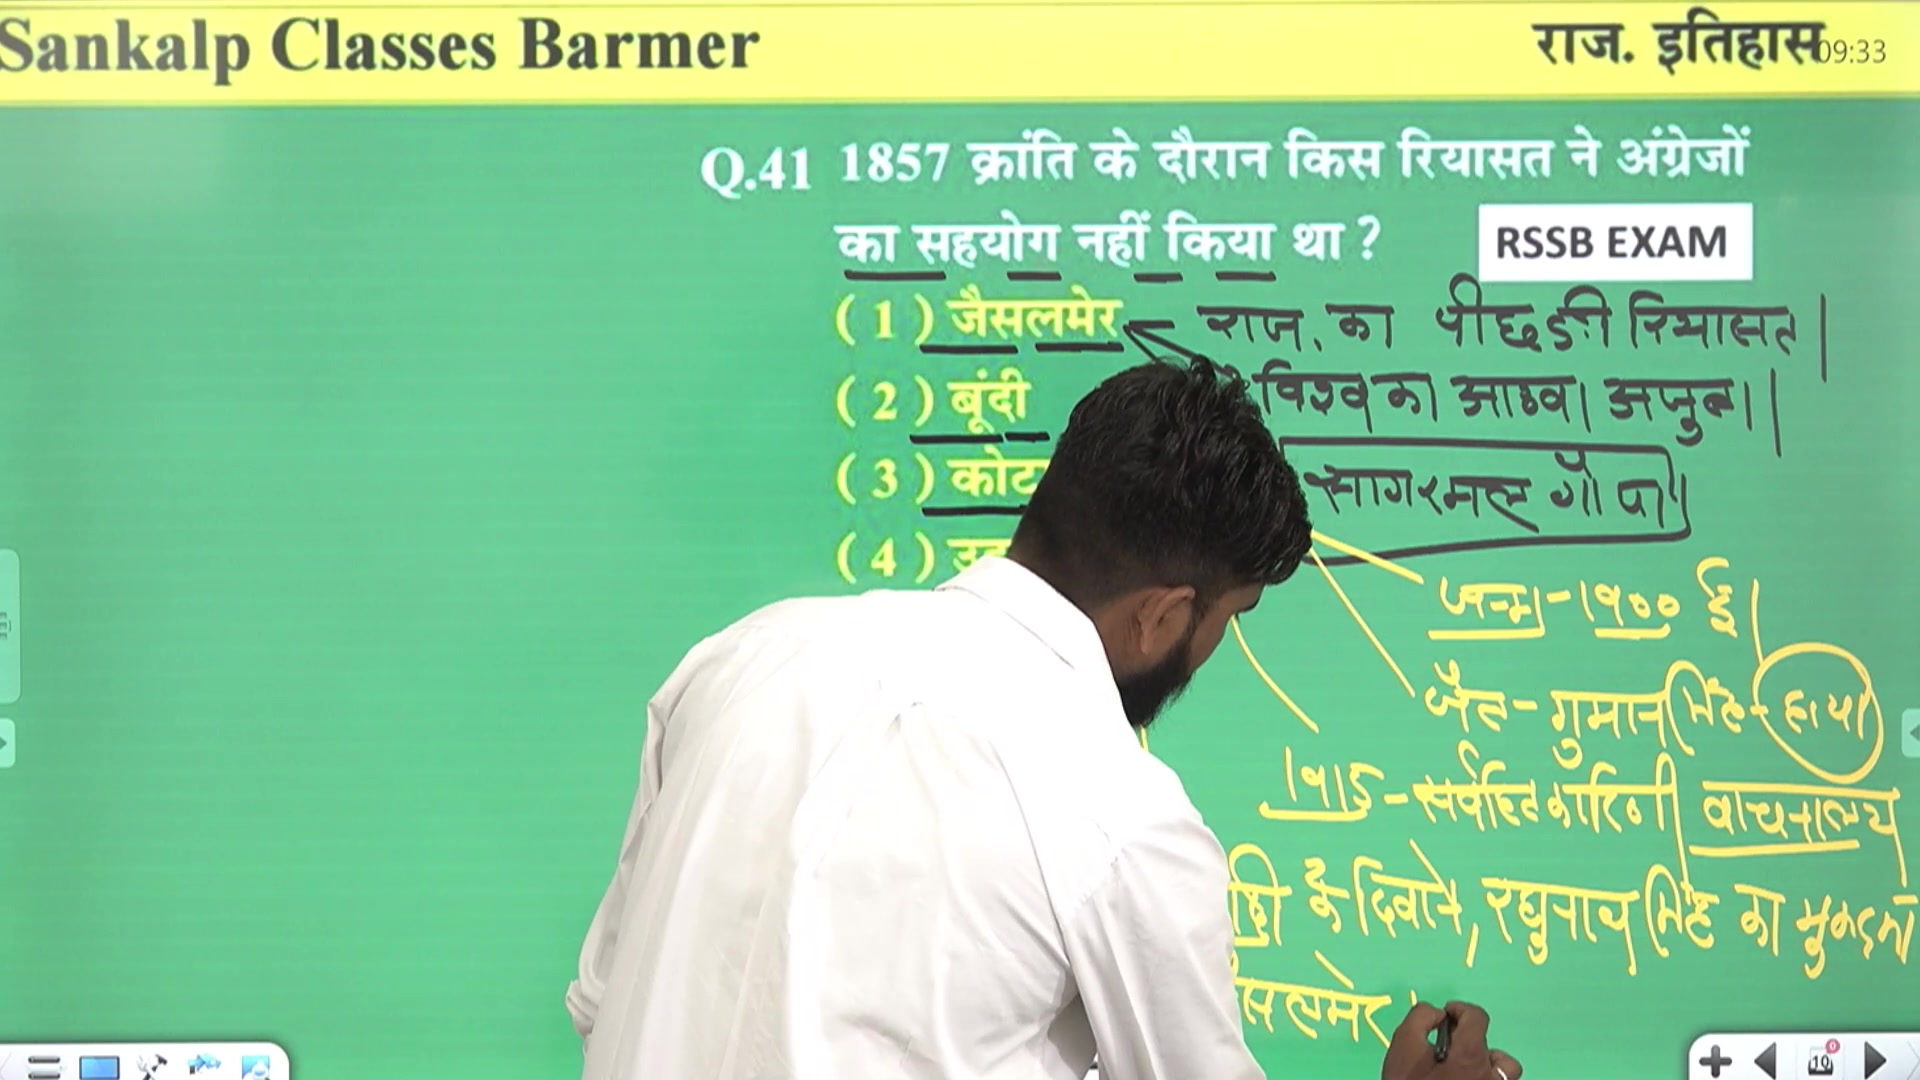 Sankalp Classes Barmer
राज. इतिहास 09:33
Q.41 1857 क्रांति के दौरान किस रियासत ने अंग्रेजों
का सहयोग नहीं किया था ?
RSSB EXAM
( 1 ) जैसलमेर
राज. का पीछड़ी रियासत|
( 2 ) बूंदी
विश्व का आठवा अजुबा|
( 3 ) कोट
सागरमल गोपा
( 4 ) उ
जन्म-1900 ई|
जैल-गुमानसिंह-
1915-सर्वहितकारिणी वाचनालय
के दिवाने, रघुनाथ सिंह का मुकदमा
10